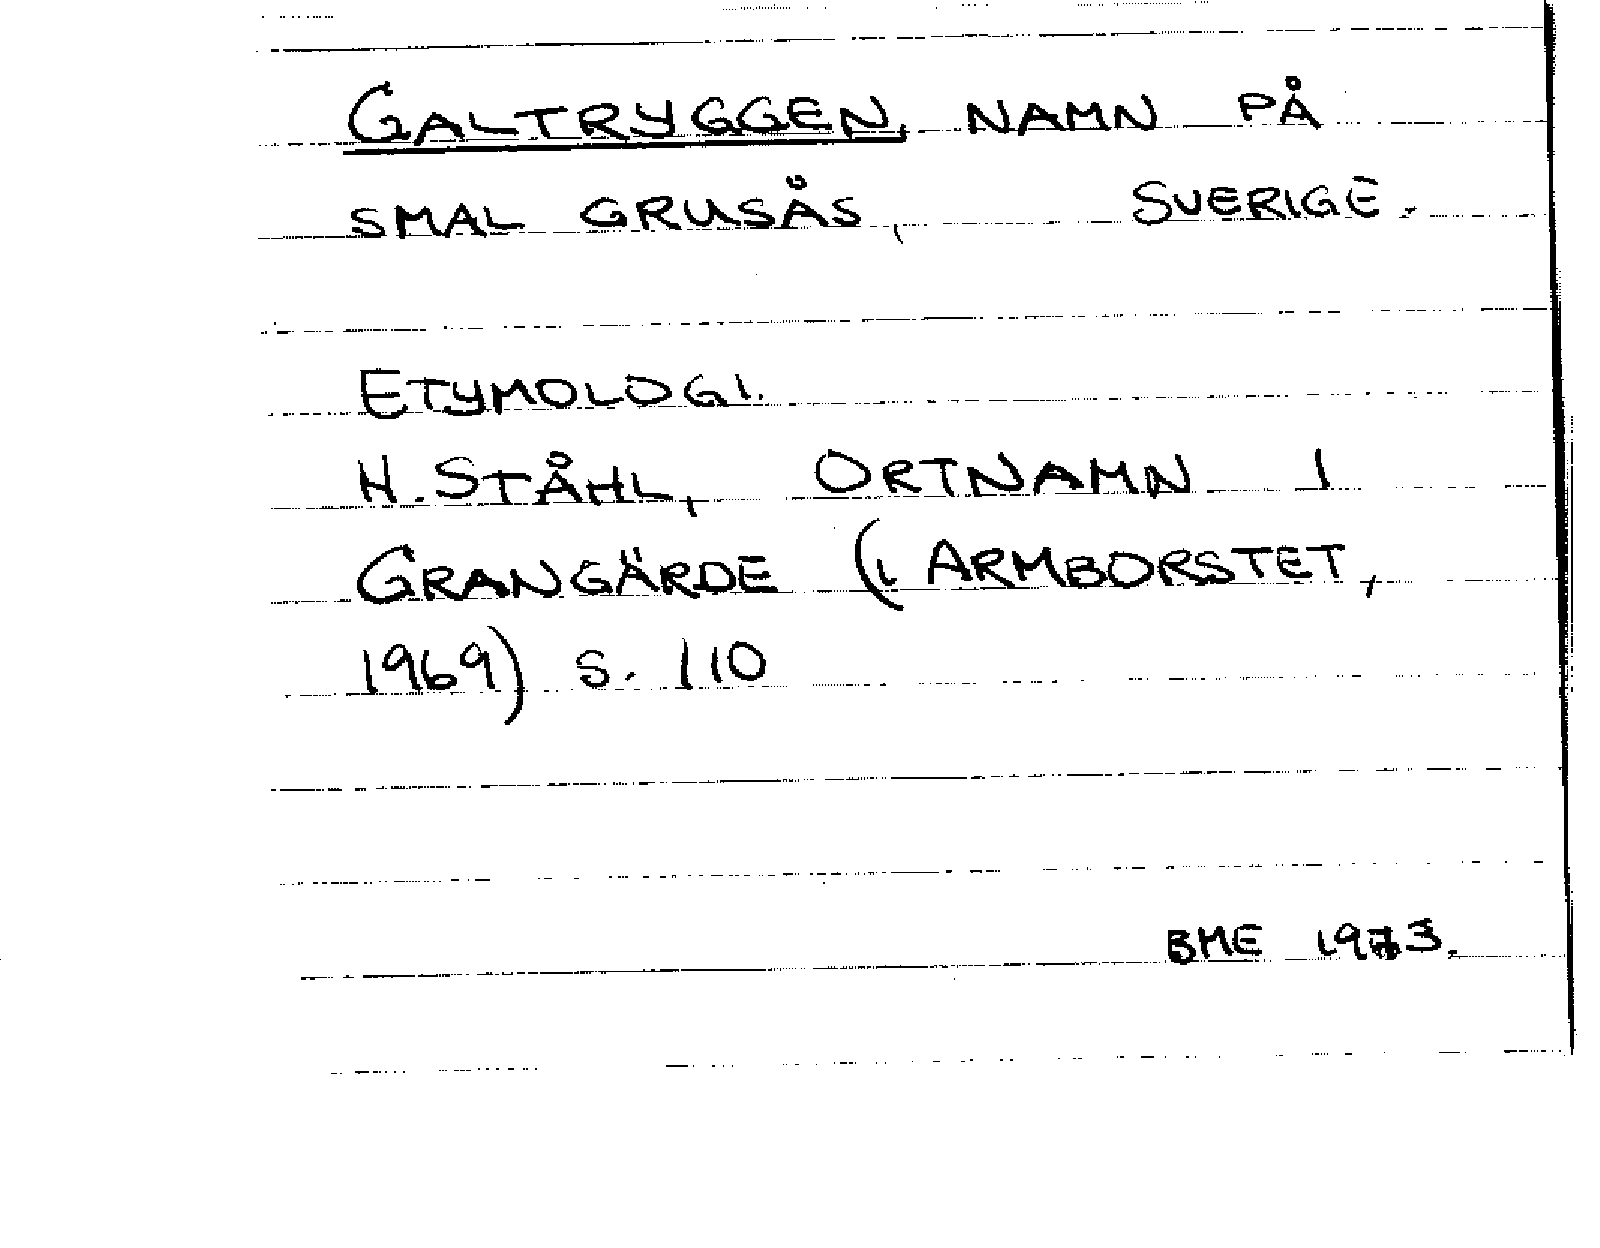 GALTRYGGEN, NAMN PÅ
SMAL GRUSÅS, SVERIGE.
ETYMOLOGI.
H. STÅHL, ORTNAMN I
GRANGÄRDE (I ARMBORSTET,
1969) S. 110
BME 1973.